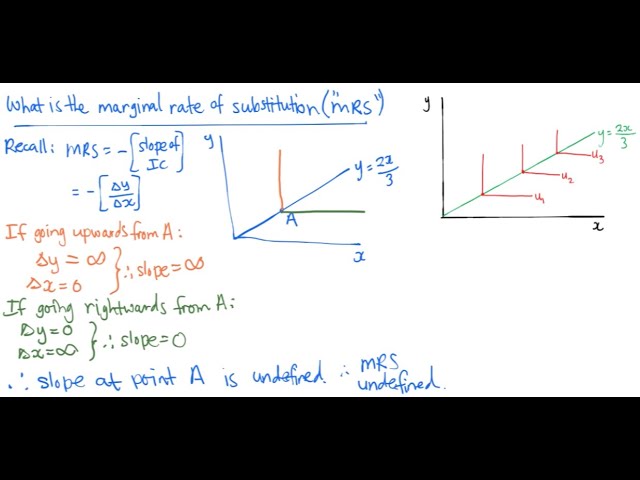 What is the marginal rate of substitution ("MRS")
Recall: MRS = - [slope of IC]
= - [Δy/Δx]
If going upwards from A:
Δy = ∞
Δx = 0
∴ slope = ∞
If going rightwards from A:
Δy = 0
Δx = ∞
∴ slope = 0
∴ slope at point A is undefined ∴ MRS undefined.
y
y = 2x/3
A
x
y
y = 2x/3
u3
u2
u1
x